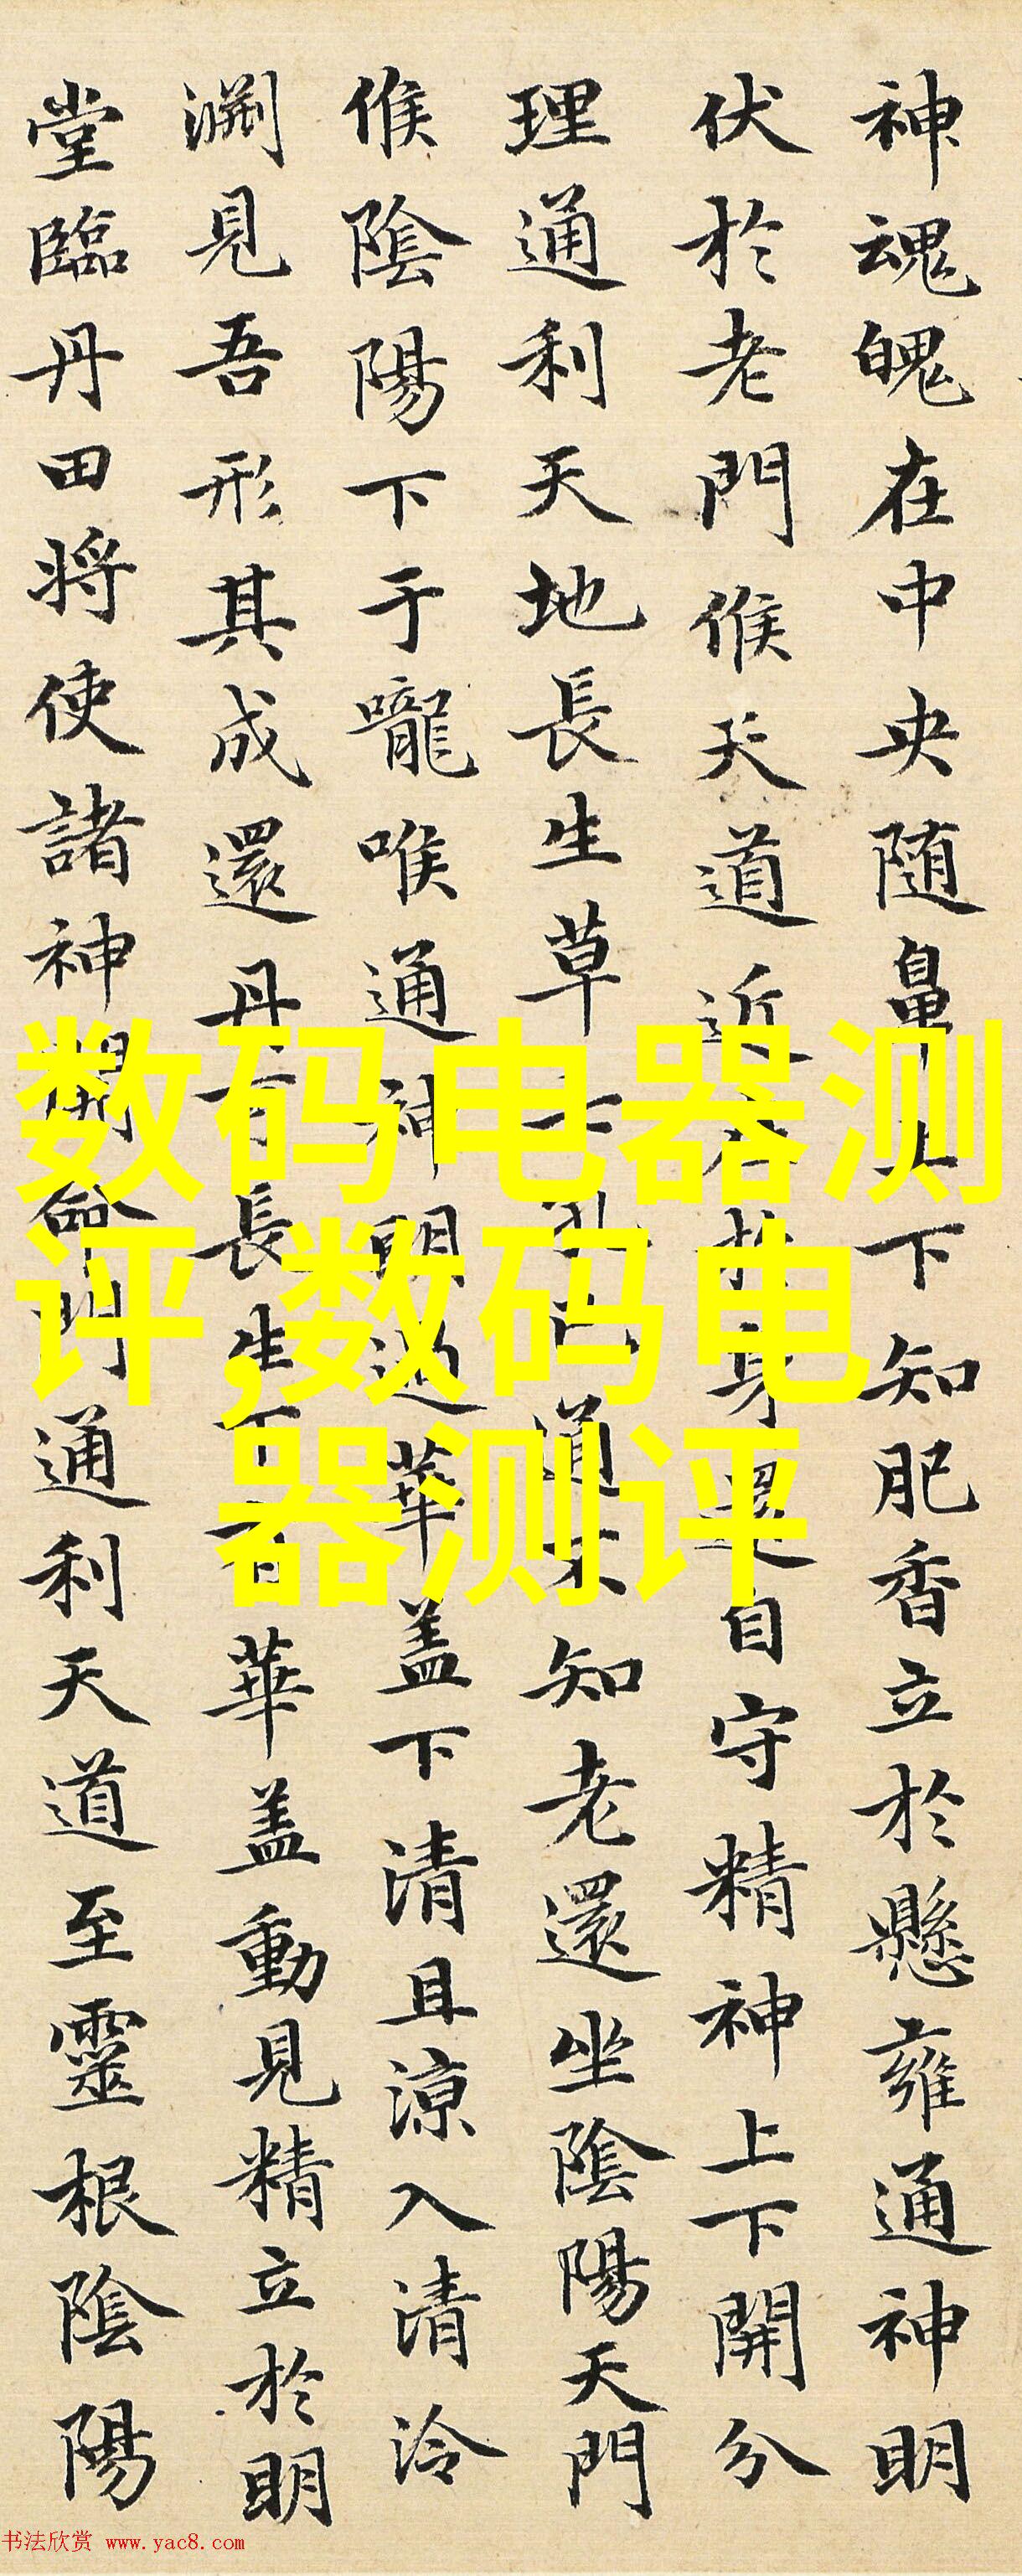 神魂魄在中央随鼻上下知肥香立於懸雍通神明
伏於老門候天道近在於身還自守精神上下開分
理通利天地長生草七孔已通不知老還坐陰陽天門
候陰陽下于嚨喉通神明過華盖下清且涼入清泠
淵見吾形其成還丹可長生下有華盖動見精立於明
堂臨丹田将使諸神開命門通利天道至靈根陰陽
数码电器测
评,数码电
器测评
书法欣赏 www.yac8.com